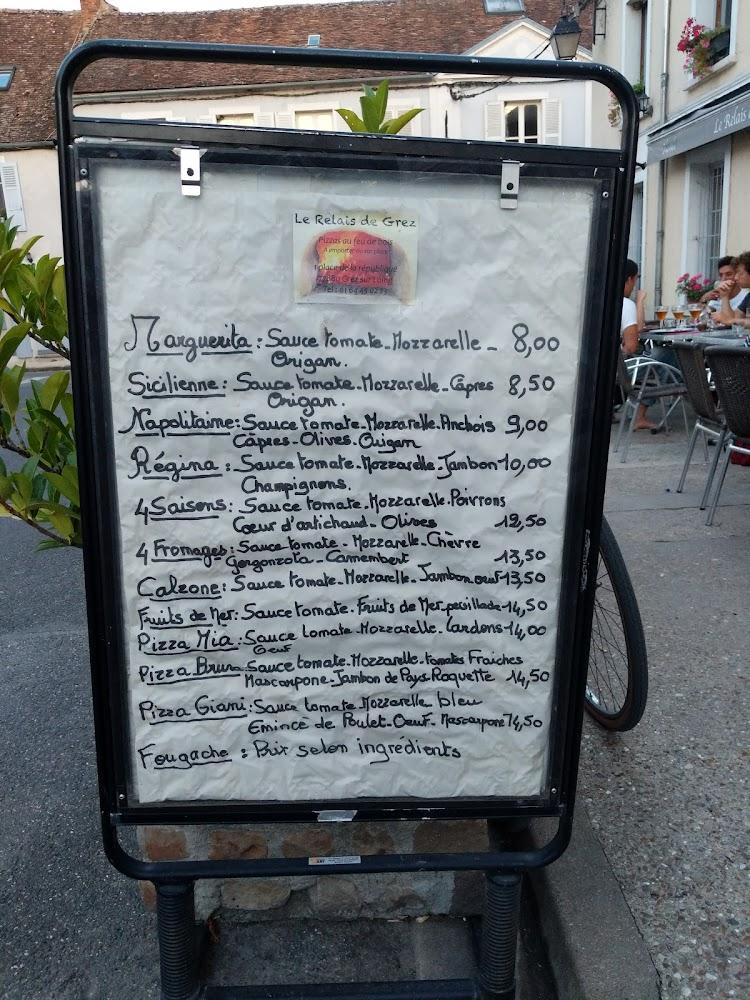 Le Relais de Grez
Pizzas au feu de bois
A emporter ou sur place
1 place de la république
Grez sur Loing
Tel: 01 64 45
Le Relais
Marguerita: Sauce tomate-Mozzarelle- 8,00
Origan.
Sicilienne: Sauce tomate-Mozzarelle-Câpres 8,50
Origan.
Napolitaine: Sauce tomate-Mozzarelle-Anchois 9,00
Câpres-Olives-Origan
Régina: Sauce tomate-Mozzarelle-Jambon 10,00
Champignons.
4 Saisons: Sauce tomate-Mozzarelle-Poivrons
Cœur d'artichaud-Olives 12,50
4 Fromages: Sauce tomate-Mozzarelle-Chèvre
Gorgonzola-Camembert 13,50
Calzone: Sauce tomate-Mozzarelle-Jambon-œuf 13,50
Fruits de Mer: Sauce tomate-Fruits de Mer-persillade 14,50
Pizza Mia: Sauce tomate-Mozzarelle-Lardons 14,00
Oeuf
Pizza Bruna Sauce tomate-Mozzarelle-tomates Fraiches
Mascarpone-Jambon de Pays-Roquette 14,50
Pizza Giani: Sauce tomate Mozzarelle bleu
Emincé de Poulet-Oeuf-Mascarpone 14,50
Fougache: Prix selon ingrédients